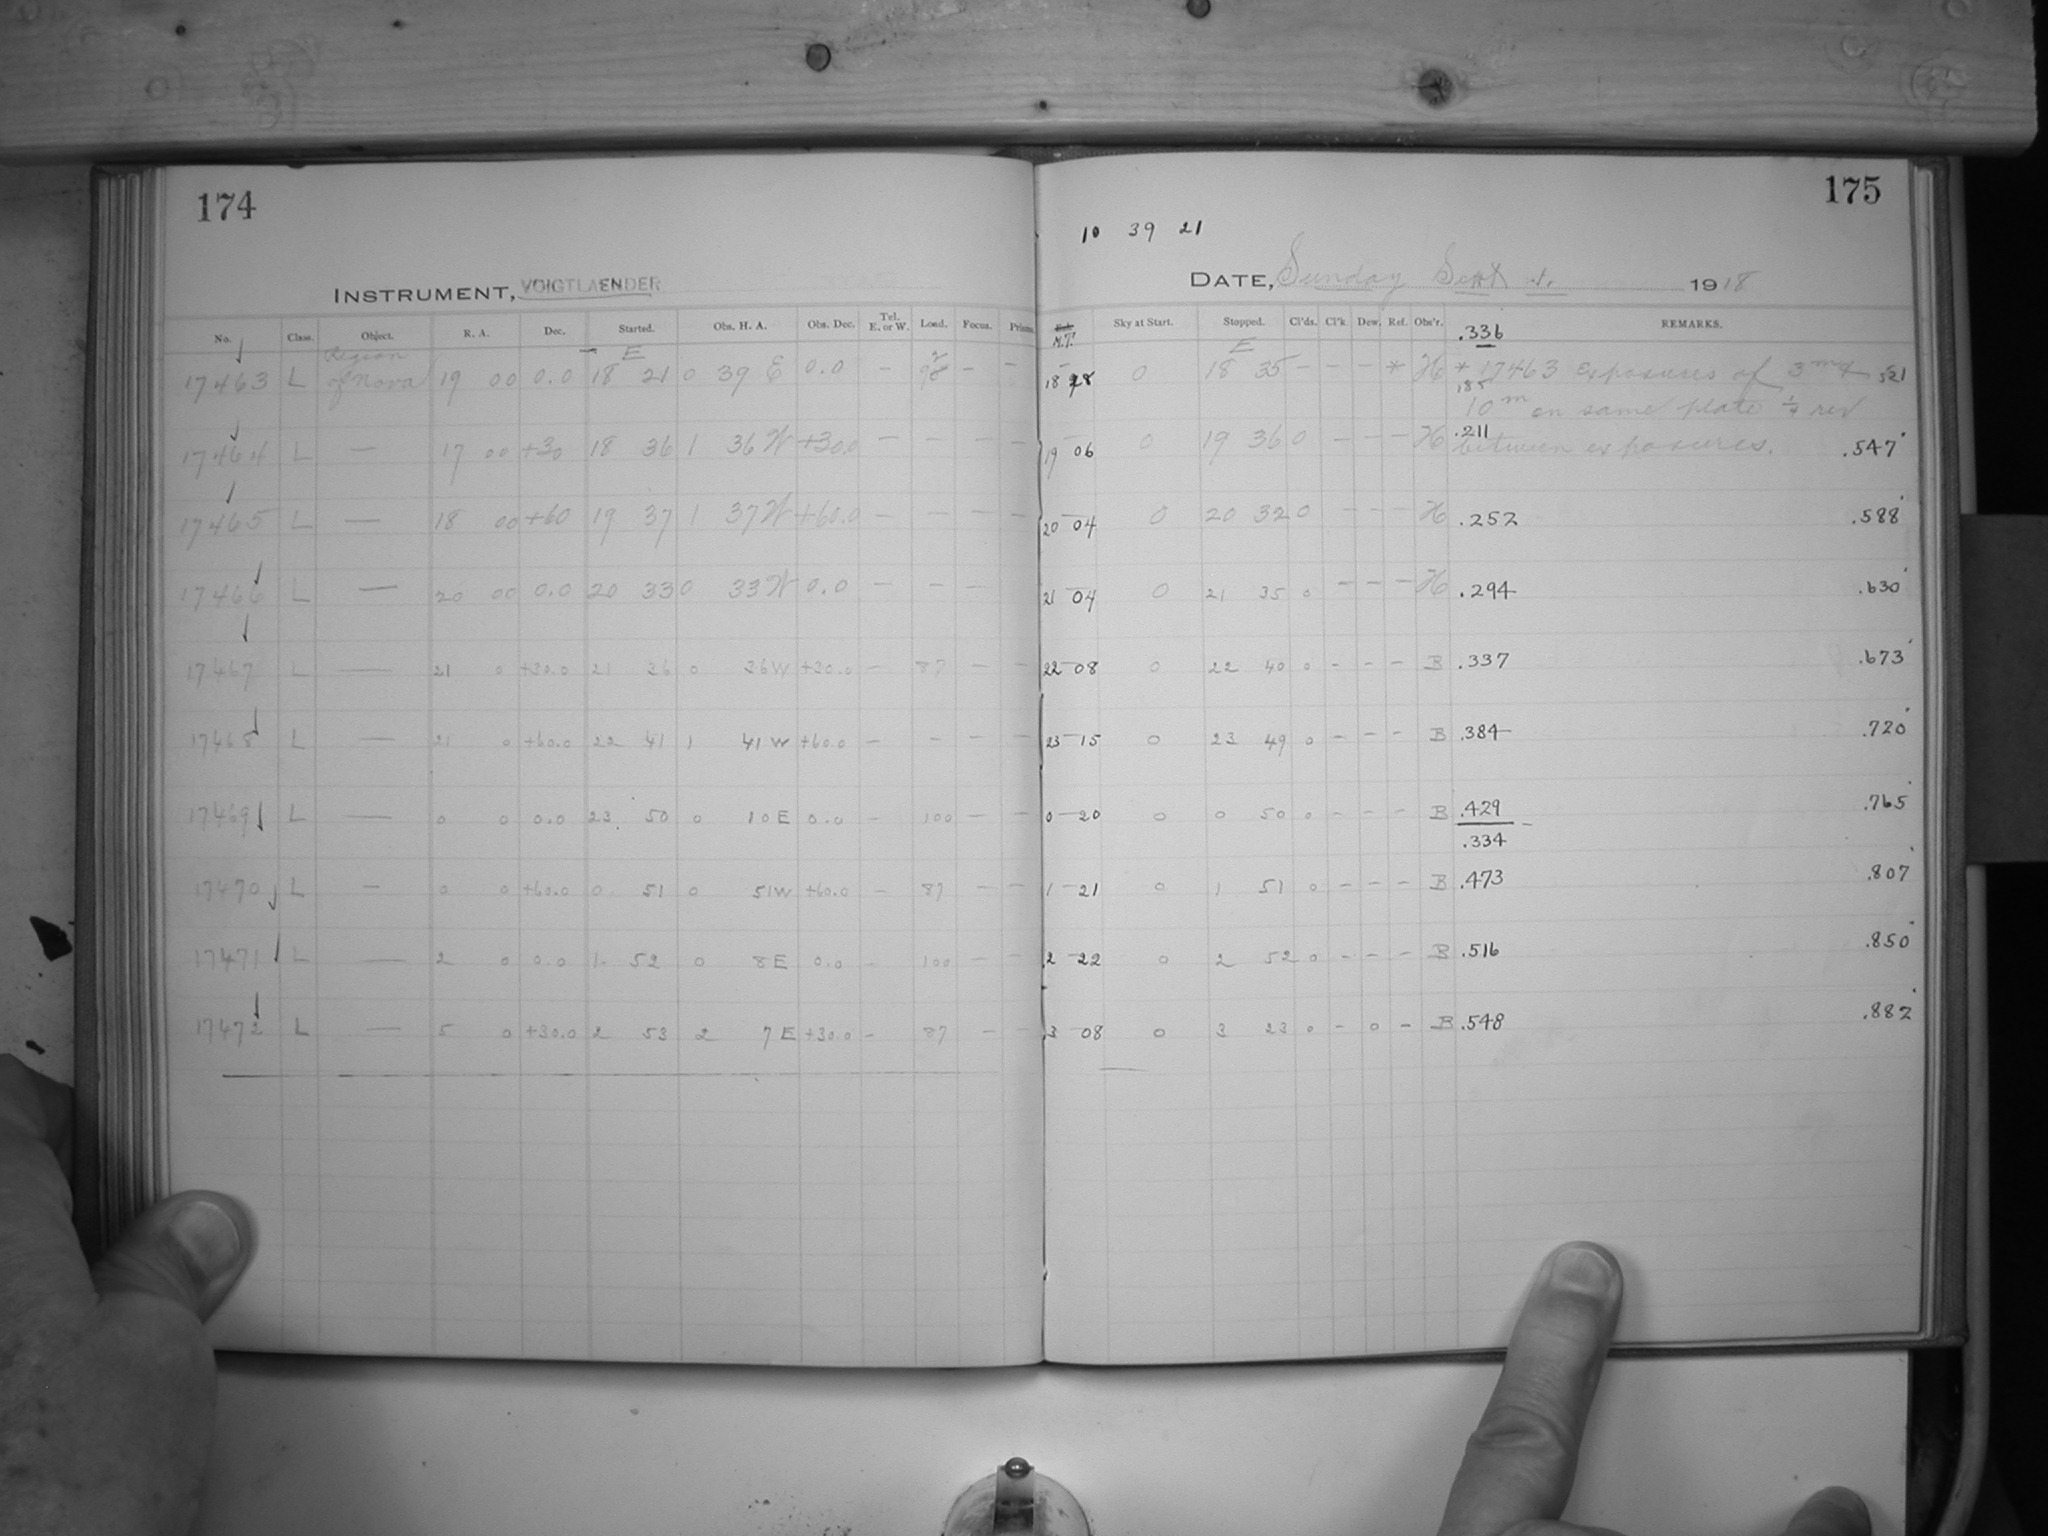 174
175
10 39 21
INSTRUMENT, VOIGTLAENDER
DATE, Sunday Sept 1. 1918
No. Class. Object. R. A. Dec. Started. Obs. H. A. Obs. Dec. Tel. E. or W. Load. Focus. Prisms. M.T. Sky at Start. Stopped. Cl'ds. Cl'k. Dew. Ref. Obs'r. .336 REMARKS.
E E
17463 L Region of Nova 19 00 0.0 18 21 0 39 E 0.0 — — — 18 28 0 18 35 — — — * H * 17463 Exposures of 3m & .521
.185 10m on same plate 1/4 rev
17464 L — 17 00 +30 18 36 1 36 W +30.0 — — — — 19 06 0 19 36 0 — — — H .211 between exposures. .547
17465 L — 18 00 +60 19 37 1 37 W +60.0 — — — — 20 04 0 20 32 0 — — — H .252 .588
17466 L — 20 00 0.0 20 33 0 33 W 0.0 — — — 21 04 0 21 35 0 — — — H .294 .630
17467 L — 21 0 +30.0 21 36 0 36 W +30.0 — 87 — — 22 08 0 22 40 0 - - - B .337 .673
17468 L — 21 0 +60.0 22 41 1 41 W +60.0 — - — — 23 15 0 23 49 0 - - - B .384 .720
17469 L — 0 0 0.0 23 50 0 10 E 0.0 - 100 — — 0 20 0 0 50 0 - - - B .429 .765
.334
17470 L — 0 0 +60.0 0 51 0 51 W +60.0 - 87 — — 1 21 0 1 51 0 - - - B .473 .807
17471 L — 2 0 0.0 1 52 0 8 E 0.0 - 100 — — 2 22 0 2 52 0 - - - B .516 .850
17472 L — 5 0 +30.0 2 53 2 7 E +30.0 - 87 — — 3 08 0 3 23 0 - 0 - B .548 .882